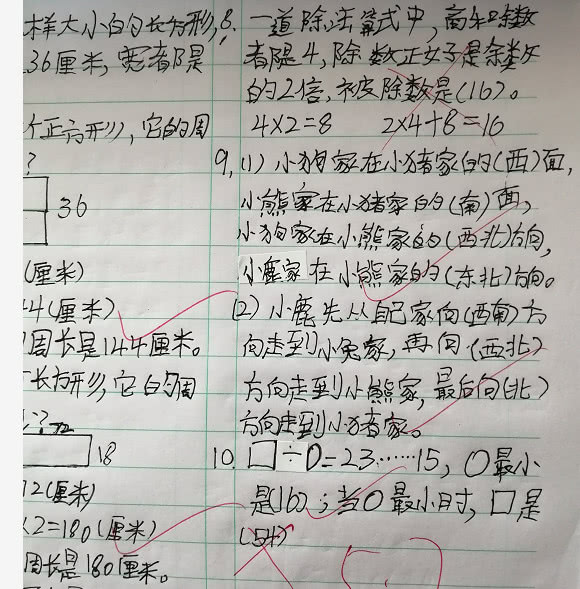 样大小的长方形,
36厘米,宽都是
个正方形,它的周
?
36
(厘米)
44(厘米)
周长是144厘米。
长方形,它的周
72
18
72(厘米)
×2=180(厘米)
周长是180厘米。
8. 一道除法算式中,商和余数
都是4,除数正好是余数
的2倍,被除数是(16)。
4×2=8 2×4+8=16
9,(1)小狗家在小猪家的(西)面,
小熊家在小猪家的(南)面,
小狗家在小熊家的(西北)方向,
小鹿家在小熊家的(东北)方向。
(2)小鹿先从自己家向(西南)方
向走到小兔家,再向(西北)
方向走到小熊家,最后向(北)
方向走到小猪家。
10. □÷O=23……15,O最小
是(16);当O最小时,□是